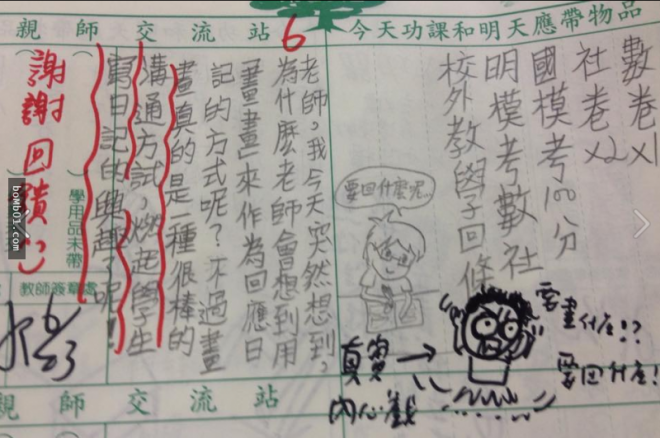 親師交流站
6
今天功課和明天應帶物品
數卷x1
社卷x2
國模考100分
明模考數社
校外教學子回條
老師，我今天突然想到，
為什麼老師會想到用
「畫畫」來作為回應日
記的方式呢？不過畫
畫真的是一種很棒的
溝通方試，燃起學生
寫日記的興趣了呢！
謝謝回饋
學用品未帶
教師簽章處
6/23
要回什麼呢..
要畫什麼!?
要回什麼!
真實
內心戲
親師交流站
bomb01.com